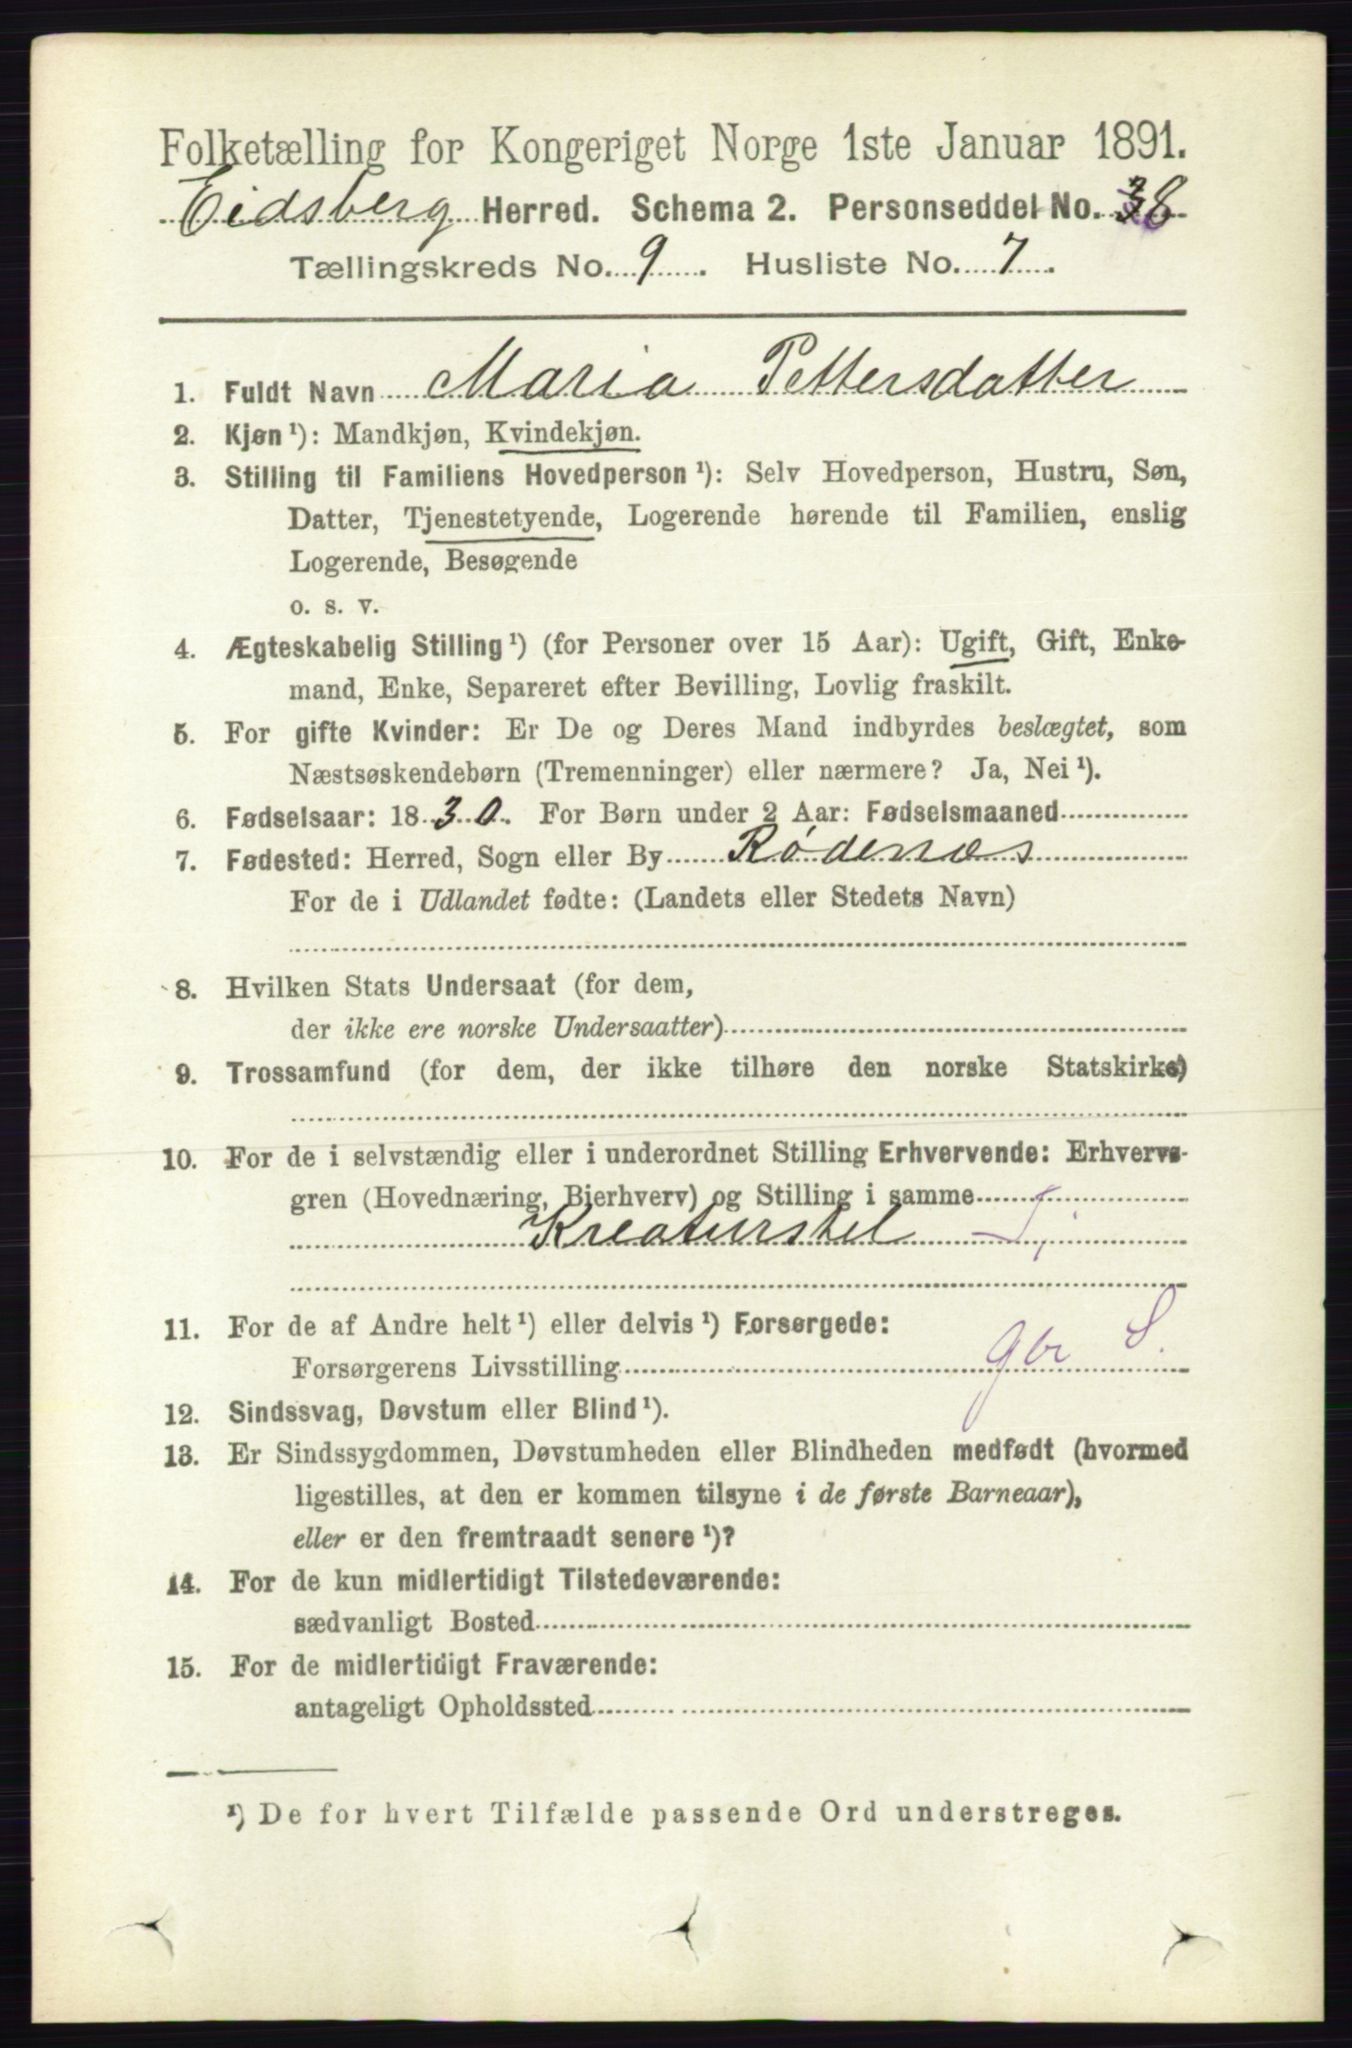 Folketælling for Kongeriget Norge 1ste Januar 1891.
Eidsberg Herred. Schema 2. Personseddel No. 38
Tællingskreds No. 9. Husliste No. 7.
1. Fuldt Navn Maria Pettersdatter
2. Kjøn ¹): Mandkjøn, Kvindekjøn.
3. Stilling til Familiens Hovedperson ¹): Selv Hovedperson, Hustru, Søn,
Datter, Tjenestetyende, Logerende hørende til Familien, enslig
Logerende, Besøgende
o. s. v.
4. Ægteskabelig Stilling ¹) (for Personer over 15 Aar): Ugift, Gift, Enke-
mand, Enke, Separeret efter Bevilling, Lovlig fraskilt.
5. For gifte Kvinder: Er De og Deres Mand indbyrdes beslægtet, som
Næstsøskendebørn (Tremenninger) eller nærmere? Ja, Nei ¹).
6. Fødselsaar: 1830. For Børn under 2 Aar: Fødselsmaaned
7. Fødested: Herred, Sogn eller By Rødenæs
For de i Udlandet fødte: (Landets eller Stedets Navn)
8. Hvilken Stats Undersaat (for dem,
der ikke ere norske Undersaatter)
9. Trossamfund (for dem, der ikke tilhøre den norske Statskirke)
10. For de i selvstændig eller i underordnet Stilling Erhvervende: Erhvervs-
gren (Hovednæring, Bierhverv) og Stilling i samme
Kreaturstel
11. For de af Andre helt ¹) eller delvis ¹) Forsørgede:
Forsørgerens Livsstilling gbr S.
12. Sindssvag, Døvstum eller Blind ¹).
13. Er Sindssygdommen, Døvstumheden eller Blindheden medfødt (hvormed
ligestilles, at den er kommen tilsyne i de første Barneaar),
eller er den fremtraadt senere ¹)?
14. For de kun midlertidigt Tilstedeværende:
sædvanligt Bosted
15. For de midlertidigt Fraværende:
antageligt Opholdssted
¹) De for hvert Tilfælde passende Ord understreges.